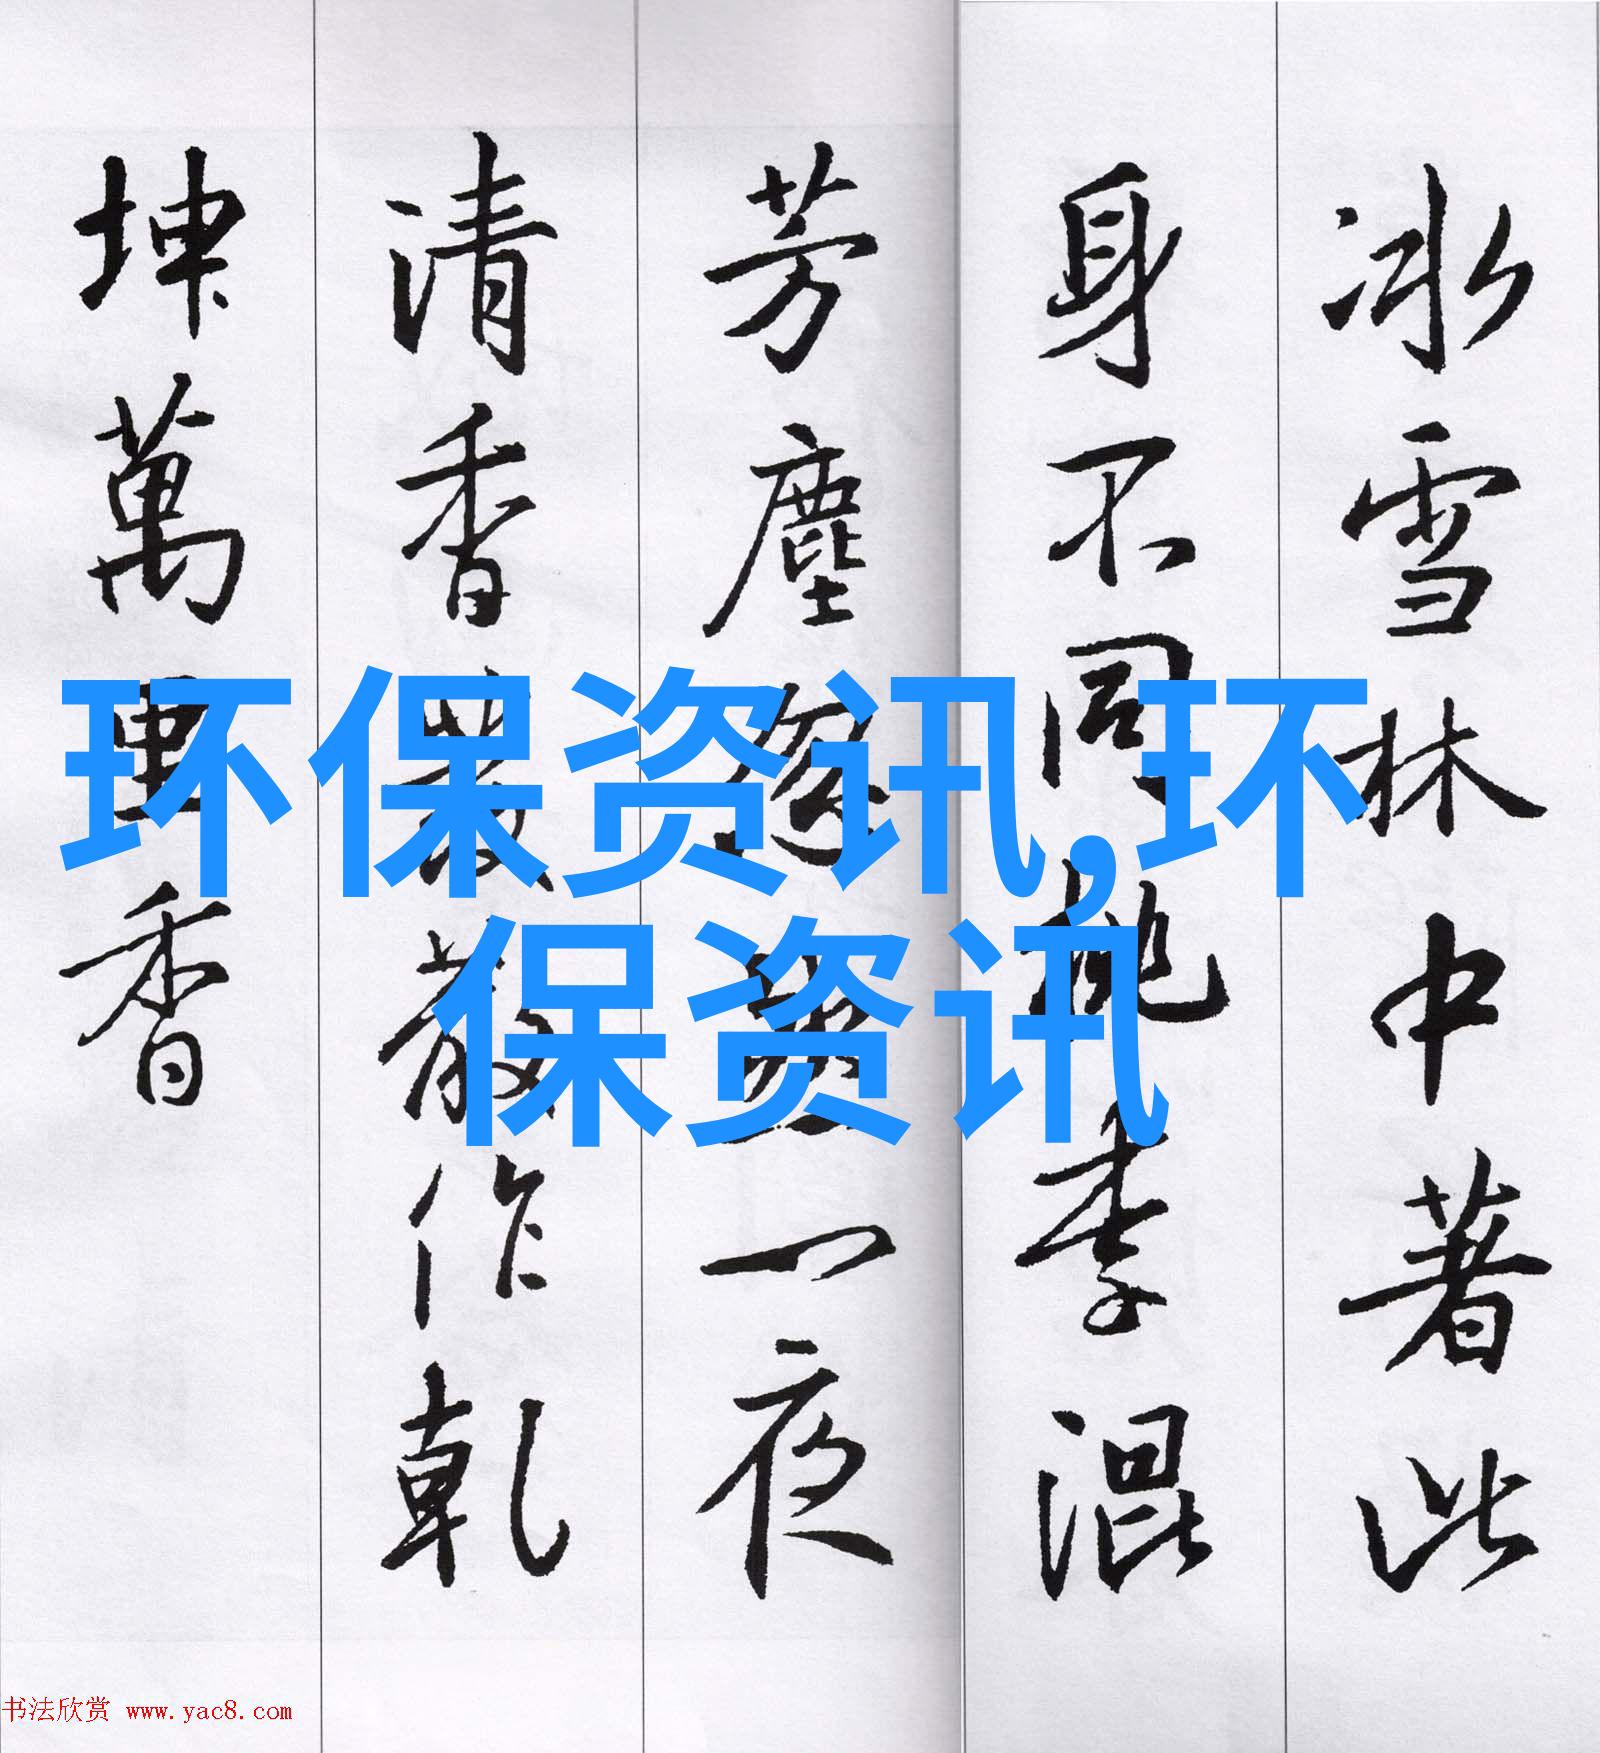 冰雪林中著此
身不同桃李混
芳塵忽然一夜
清香發散作乾
坤萬里香
环保资讯,环
保资讯
书法欣赏 www.yac8.com